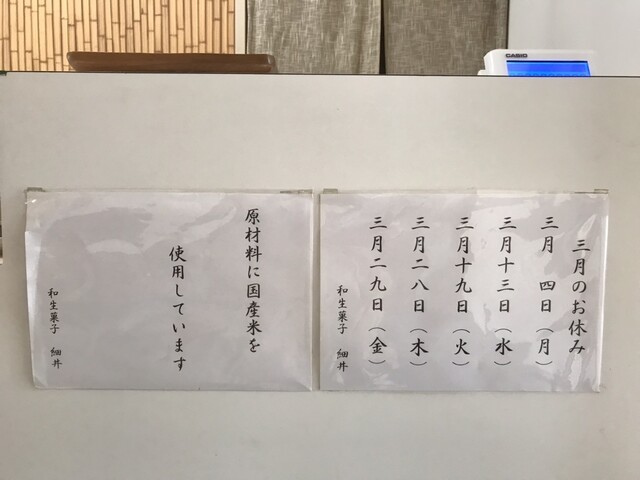 CASIO
三月のお休み
三月 四日（月）
三月十三日（水）
三月十九日（火）
三月二八日（木）
三月二九日（金）
和生菓子 細井
原材料に国産米を
使用しています
和生菓子 細井